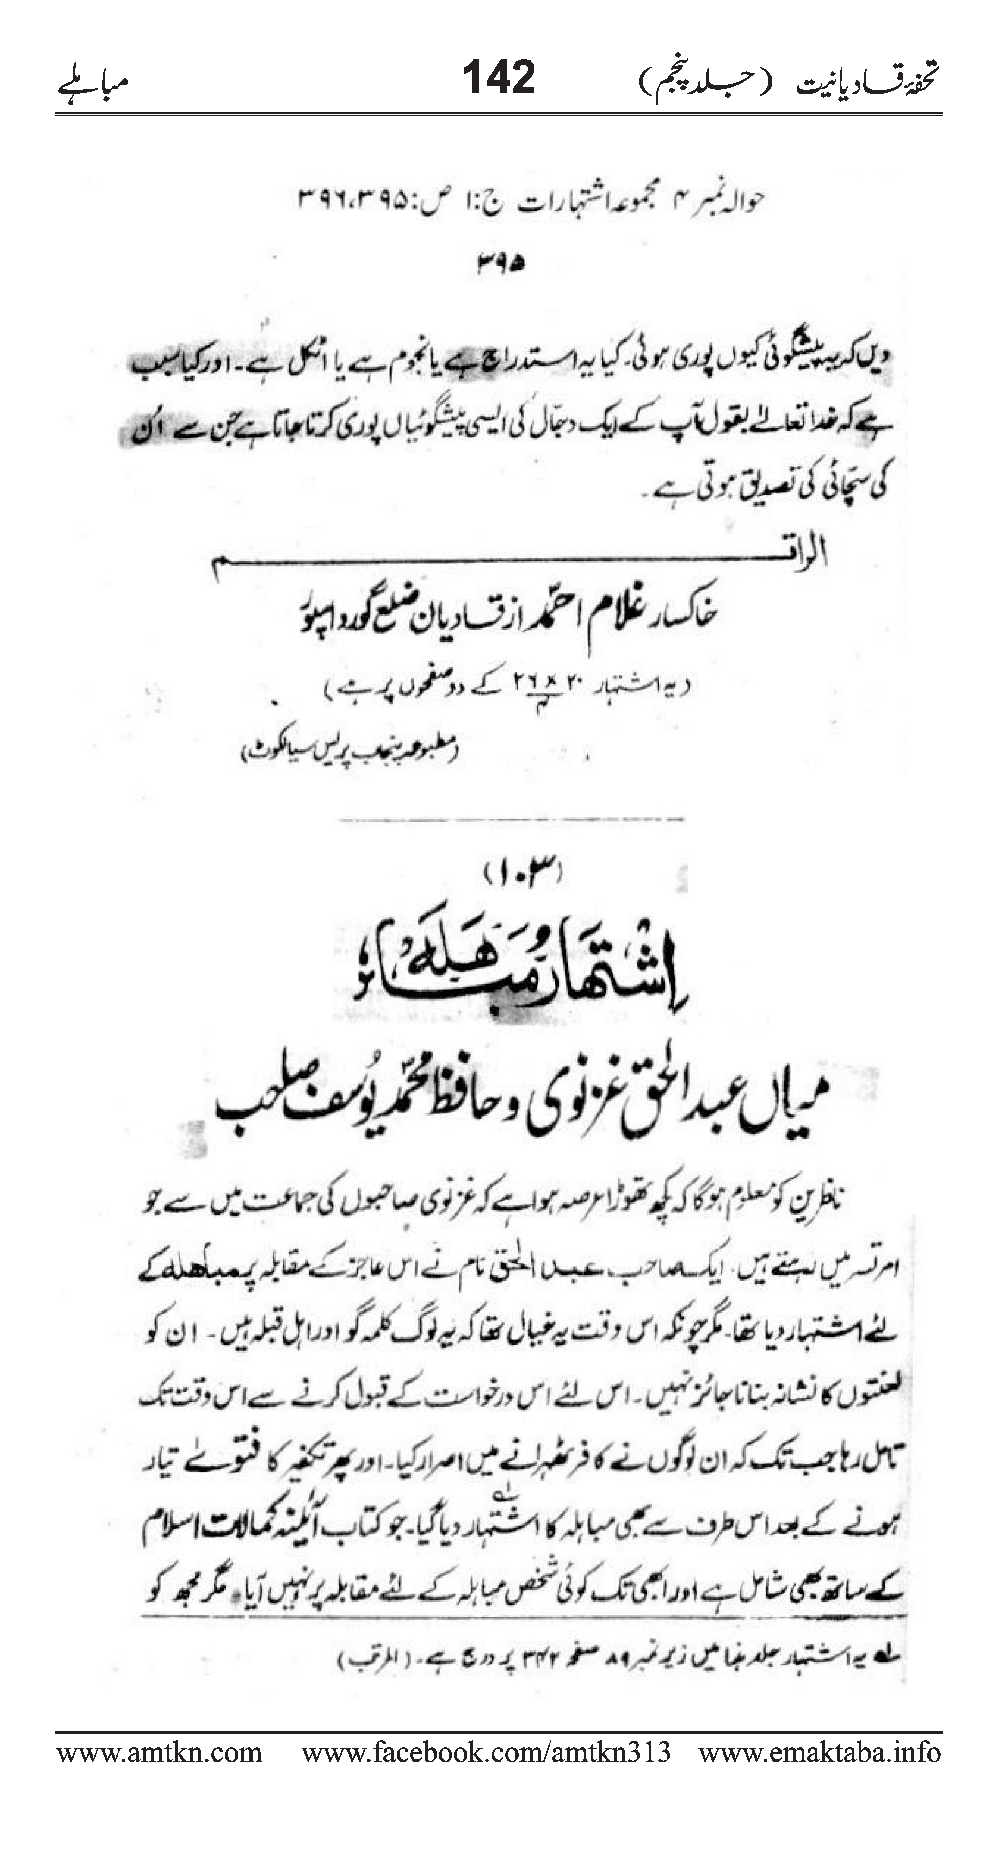 تحفۂ قادیانیت (جلد پنجم) 142 مباہلے
حوالہ نمبر ۴ مجموعہ اشتہارات ج:۱ ص:۳۹۵،۳۹۶
۳۹۵
دیں کہ یہ پیشگوئی کیوں پوری ہوئی۔ کیا یہ استدراج ہے یا نجوم ہے یا اٹکل ہے۔ اور کیا سبب
ہے کہ خدا تعالےٰ بقول آپ کے ایک دجّال کی ایسی پیشگوئیاں پوری کرتا جاتا ہے جن سے اُن
کی سچّائی کی تصدیق ہوتی ہے۔
الراقم
خاکسار غلام احمد از قادیان ضلع گورداسپور
(یہ اشتہار ۲۰×۲۶/۴ کے دو صفحوں پر ہے)
(مطبوعہ پنجاب پریس سیالکوٹ)
(۱۰۳)
اِشتہار مُباھلہ
میاں عبدالحق غزنوی و حافظ محمّد یُوسف صاحب
ناظرین کو معلوم ہوگا کہ کچھ تھوڑا عرصہ ہوا ہے کہ غزنوی صاحبوں کی جماعت میں سے جو
امرتسر میں رہتے ہیں۔ ایک صاحب عبد الحق نام نے اس عاجز کے مقابلہ پر مباھلہ کے
لئے اشتہار دیا تھا۔ مگر چونکہ اس وقت یہ خیال تھا کہ یہ لوگ کلمہ گو اور اہل قبلہ ہیں۔ ان کو
لعنتوں کا نشانہ بنانا جائز نہیں۔ اس لئے اس درخواست کے قبول کرنے سے اس وقت تک
تامل رہا جب تک کہ ان لوگوں نے کافر ٹھہرانے میں اصرار کیا۔ اور پھر تکفیر کا فتوےٰ تیار
ہونے کے بعد اس طرف سے بھی مباہلہ کا اشتہار دیا گیا۔ جو کتاب آئینہ کمالات اسلام
کے ساتھ بھی شامل ہے اور ابھی تک کوئی شخص مباہلہ کے لئے مقابلہ پر نہیں آیا۔ مگر مجھ کو
لہ یہ اشتہار جلد ہذا میں زیر نمبر ۸۹ صفحہ ۳۴۲ پر درج ہے۔ (المرتب)
www.amtkn.com www.facebook.com/amtkn313 www.emaktaba.info